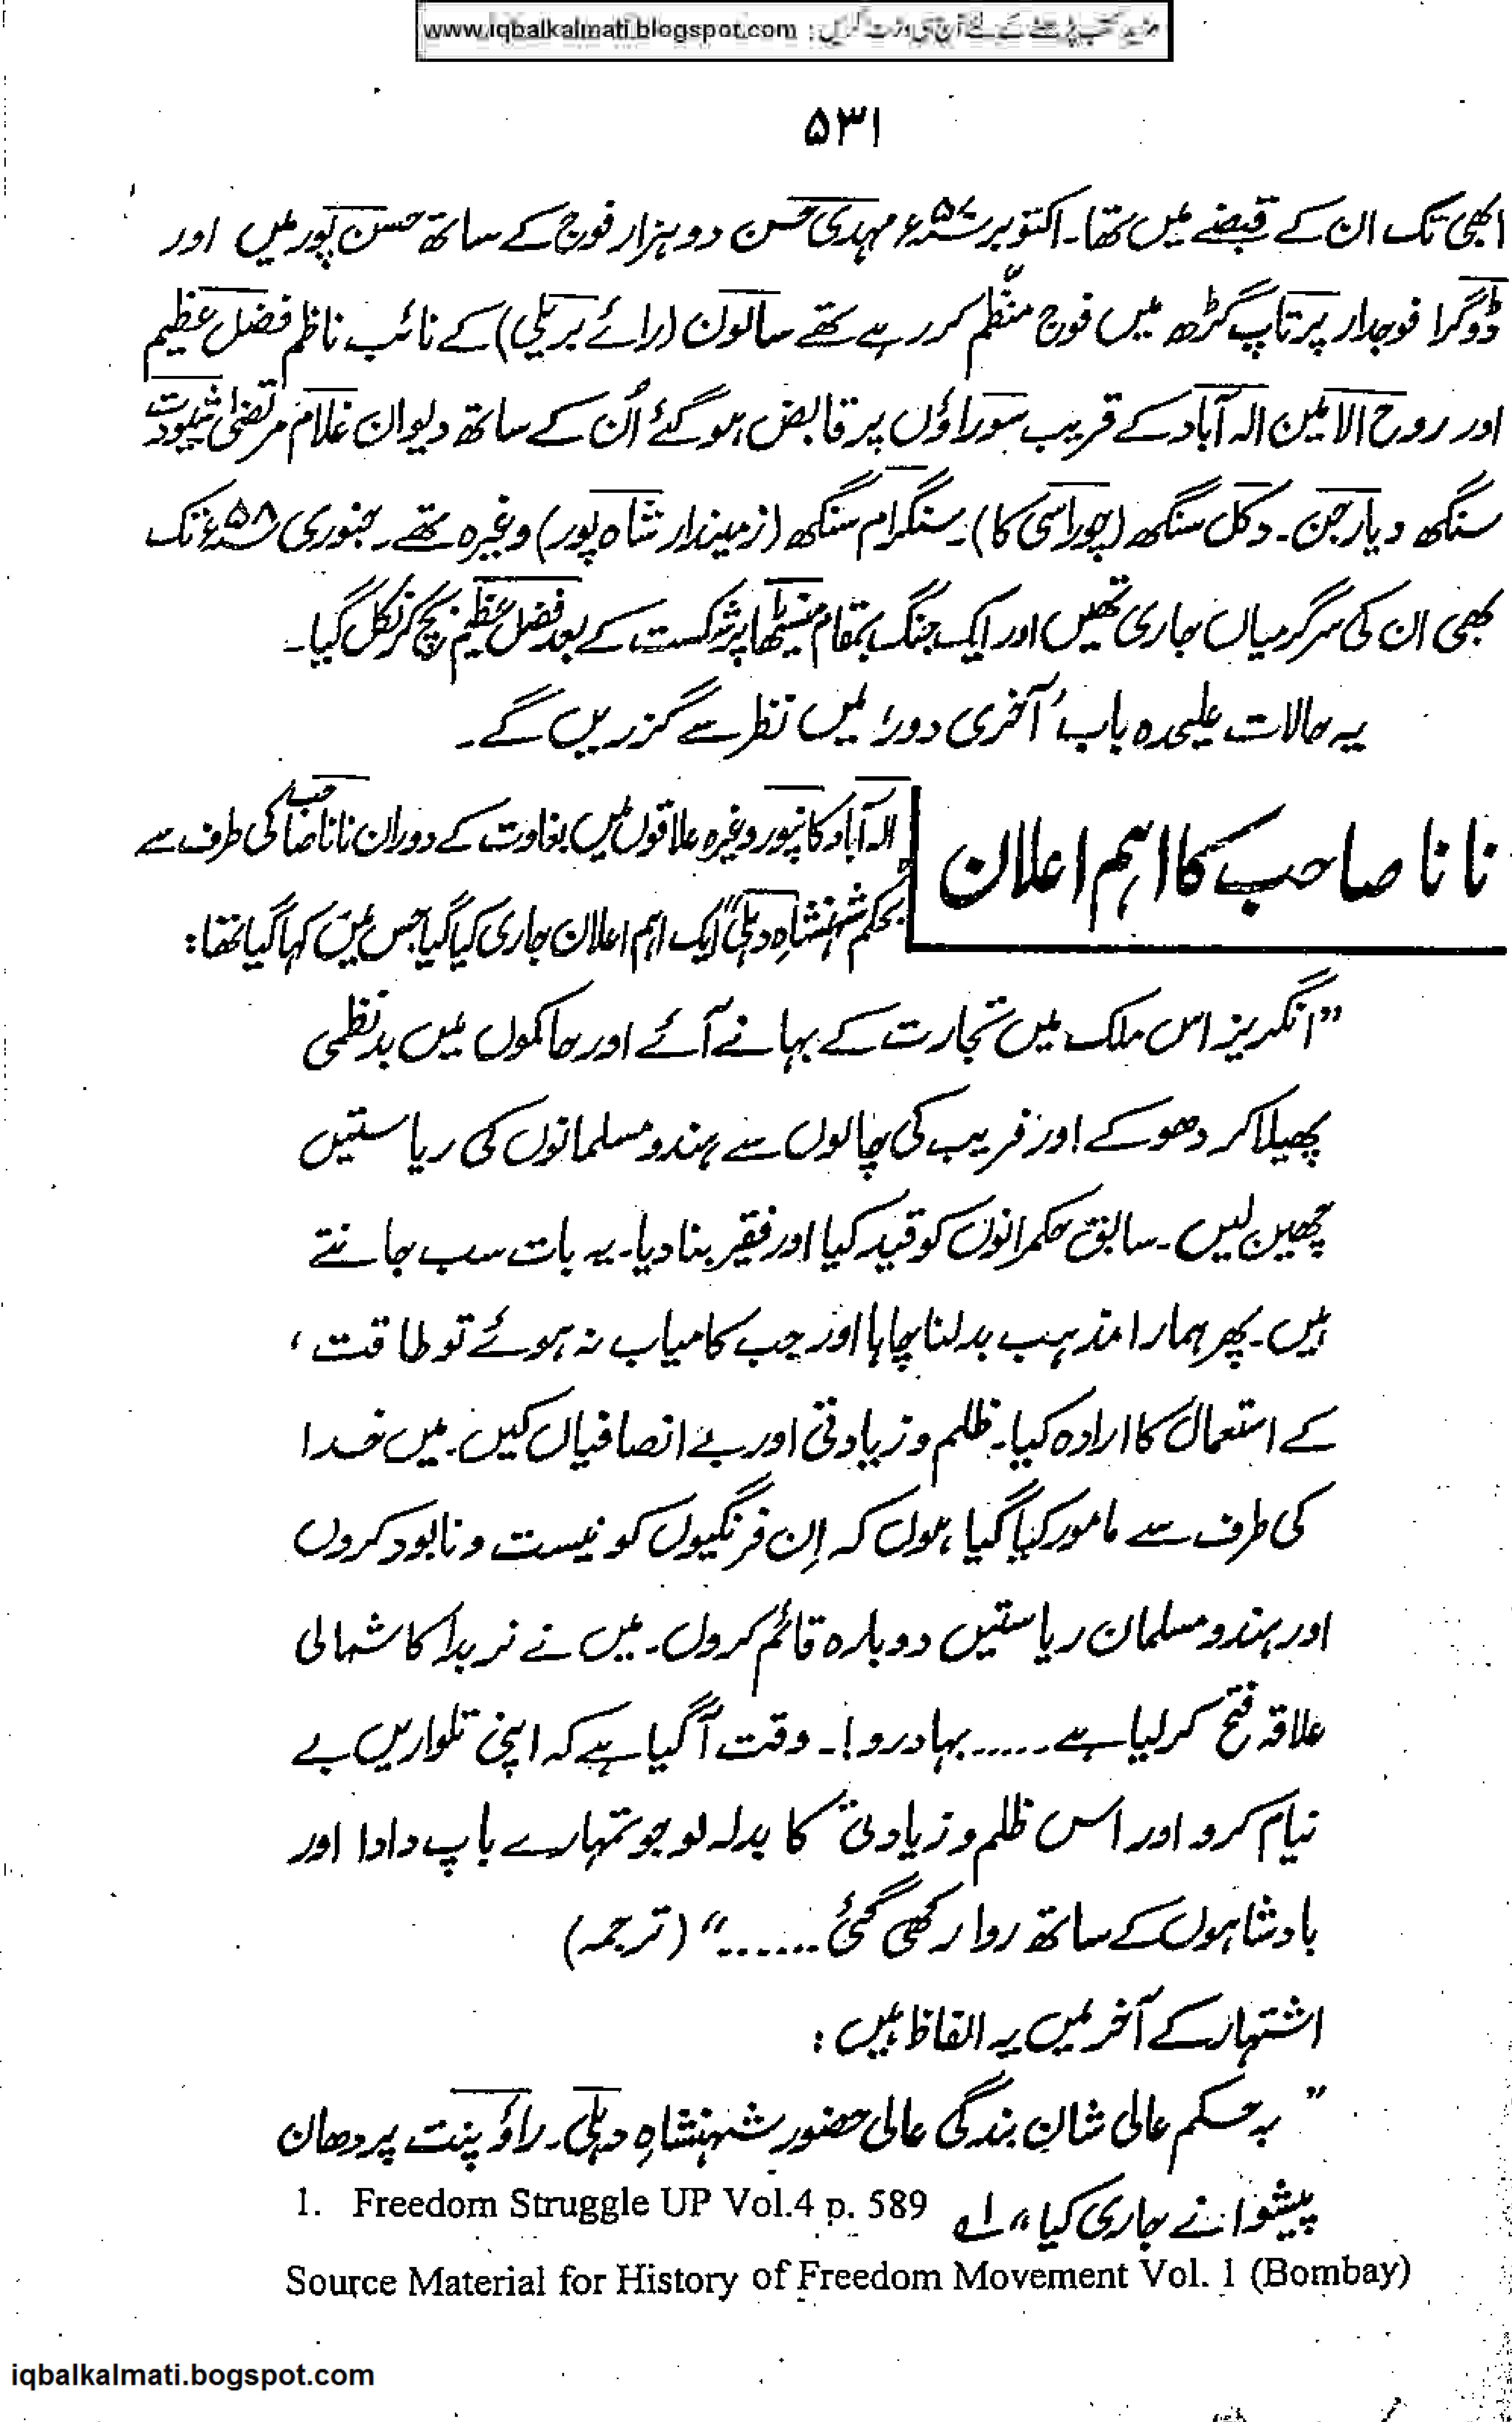 www.iqbalkalmati.blogspot.com : مزید کتب پڑھنے کے لئے آج ہی وزٹ کریں
۵۳۱
ابھی تک ان کے قبضے میں تھا۔ اکتوبر ۵۷ء مہدی حسن دو ہزار فوج کے ساتھ حسن پور میں اور
ڈوگرا فوجدار پرتاپ گڑھ میں فوج منظّم کر رہے تھے سالون (رائے بریلی) کے نائب ناظم فضل عظیم
اور روح الامین الہ آباد کے قریب سوراؤں پر قابض ہو گئے اُن کے ساتھ دیوان غلام مرتضیٰ
سنگھ دیارجن۔ دکل سنگھ (چوراسی کا)۔ سنگرام سنگھ (زمیندار شاہ پور) وغیرہ تھے۔ جنوری ۵۸ء تک
بھی ان کی سرگرمیاں جاری تھیں اور ایک جنگ بمقام منیٹھا پر شکست کے بعد فضل عظیم بچ کر نکل گیا۔
یہ حالات علیحدہ باب ’آخری دور‘ میں نظر سے گزریں گے۔
نانا صاحب کا اہم اعلان
الہ آباد کانپور وغیرہ علاقوں میں بغاوت کے دوران نانا صاحب کی طرف سے
بحکم شہنشاہِ دہلی“ ایک اہم اعلان جاری کیا گیا جس میں کہا گیا تھا:
”انگریز اس ملک میں تجارت کے بہانے آئے اور حاکموں میں بدنظمی
پھیلا کر دھوکے اور فریب کی چالوں سے ہندو مسلمانوں کی ریاستیں
چھین لیں۔ سابق حکمرانوں کو قید کیا اور فقیر بنا دیا۔ یہ بات سب جانتے
ہیں۔ پھر ہمارا مذہب بدلنا چاہا اور جب کامیاب نہ ہوئے تو طاقت،
کے استعمال کا ارادہ کیا۔ ظلم و زیادتی اور بے انصافیاں کیں۔ میں خدا
کی طرف سے مامور کیا گیا ہوں کہ اِن فرنگیوں کو نیست و نابود کروں
اور ہندو مسلمان ریاستیں دوبارہ قائم کروں۔ میں نے نربدا کا شمالی
علاقہ فتح کر لیا ہے ...... بہادرو!۔ وقت آ گیا ہے کہ اپنی تلواریں بے
نیام کرو اور اس ظلم و زیادتی کا بدلہ لو جو تمہارے باپ دادا اور
بادشاہوں کے ساتھ روا رکھی گئی ......“ (ترجمہ)
اشتہار کے آخر میں یہ الفاظ ہیں:
”بہ حکم عالی شان بندگی عالی حضور شہنشاہِ دہلی۔ راؤ پنت پردھان
پیشوا نے جاری کیا“ ۱ے
1. Freedom Struggle UP Vol.4 p. 589
Source Material for History of Freedom Movement Vol. 1 (Bombay)
iqbalkalmati.bogspot.com